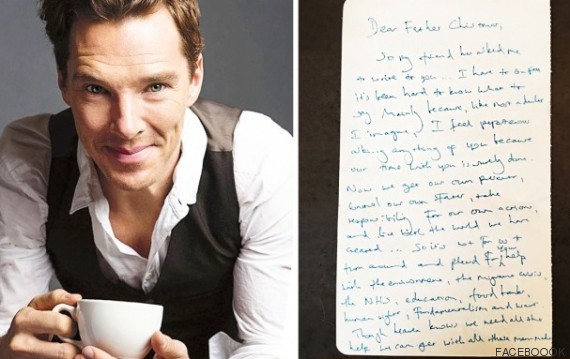 Dear Father Christmas,
So my friend has asked me
to write to you... I have to confess
it's been hard to know what to
say. Mainly because, like most adults
I imagine, I feel
asking anything of you because
our time with you is surely done.
Now we get our own presents,
our own, take
responsibility for our own actions,
and live with the world we have
created... So it's not for us to
turn around and plead for your help
with the environment, the migrant crisis,
the NHS, education, food banks,
human rights, fundamentalism and war.
Though heaven knows we need all the
help we can get with all these man made
FACEBOOOK